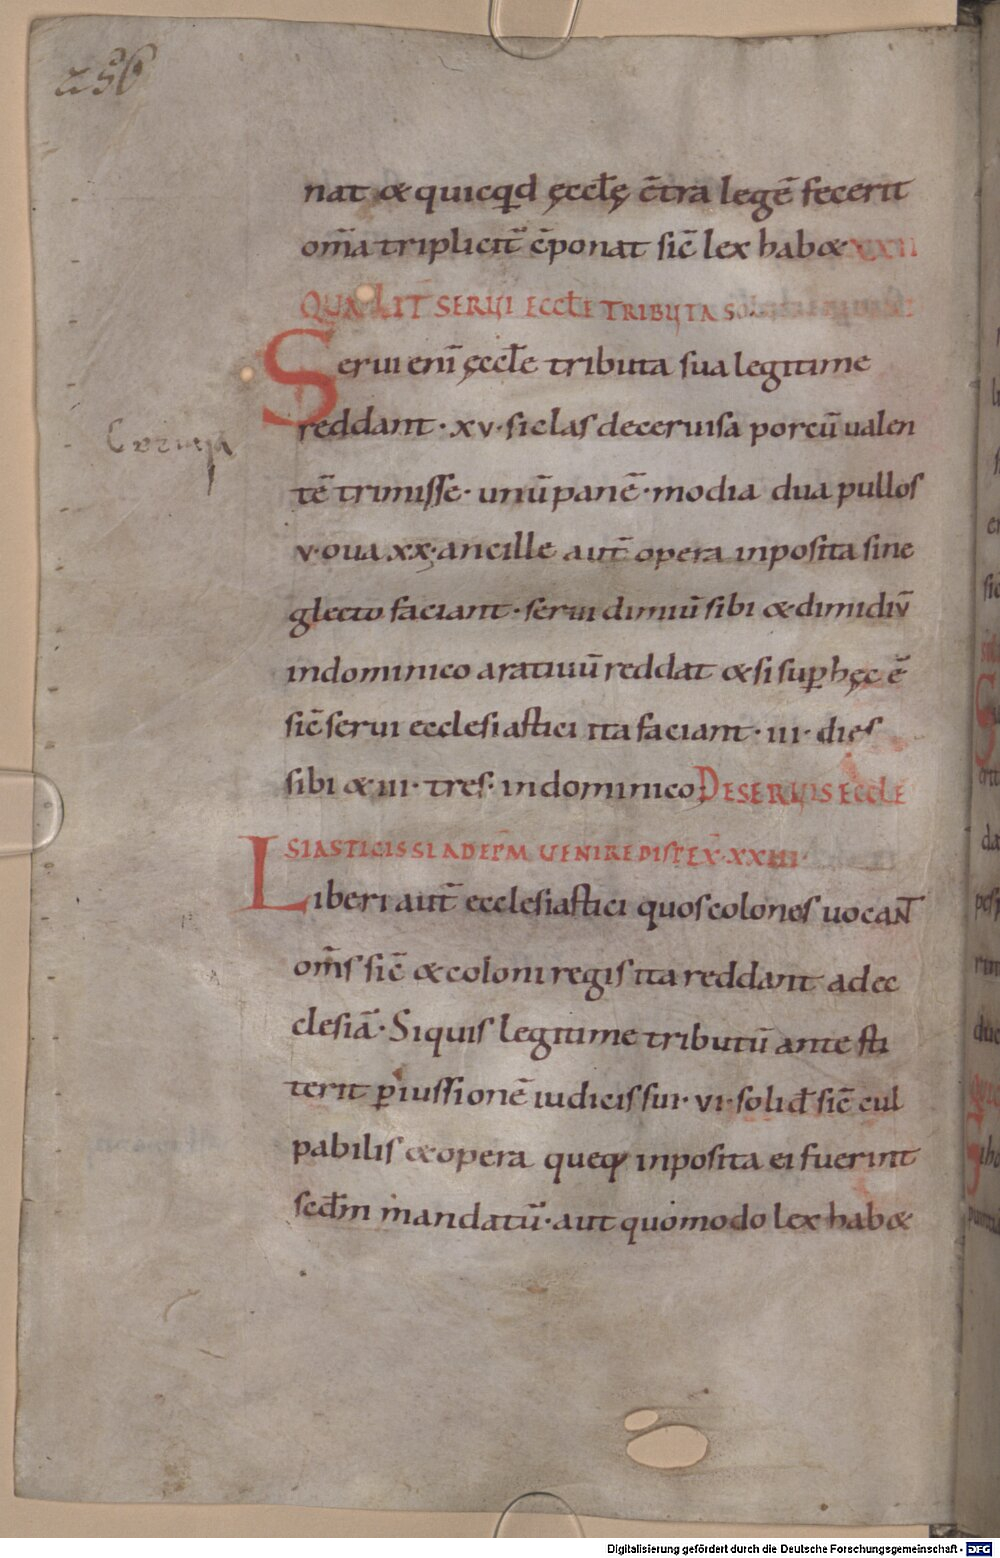 256
nat & quicq̅d ęccl̅ę c̅tra legē fecerit
om̅ia triplicit̅ c̅ponat sic̅ lex hab& XXII
QUALIT̅ SERUI ECCL̅E TRIBUTA SOL
Serui eni̅ ęccl̅e tributa sua legitime
reddant · xv · siclas de ceruisa porcū ualen
tē trimisse · unū panē · modia dua pullos
v · oua xx · ancille aut̅ opera inposita sine
glecto faciant · serui dimiū sibi & dimidiū
in dominico aratiuū reddat & si sup̱ hęc ē
sic̅ serui ecclesiastici ita faciant · iii · dies
sibi & iii · tres · in dominico DE SERUIS ECCLE
SIASTICIS SI AD EPM̅ UENIRE DISPEX̅ · XXIII ·
Liberi aut̅ ecclesiastici quos colones uocaNT
om̅s sic̅ & coloni regis ita reddant ad ec
clesiā · Si quis legitime tributū ante sti
terit p̱ iussionē iudicis sui · vi · solid̅ sic̅ cul
pabilis & opera queq inposita ei fuerint
scd̅m mandatū · aut quomodo lex hab&
Digitalisierung gefördert durch die Deutsche Forschungsgemeinschaft - DFG